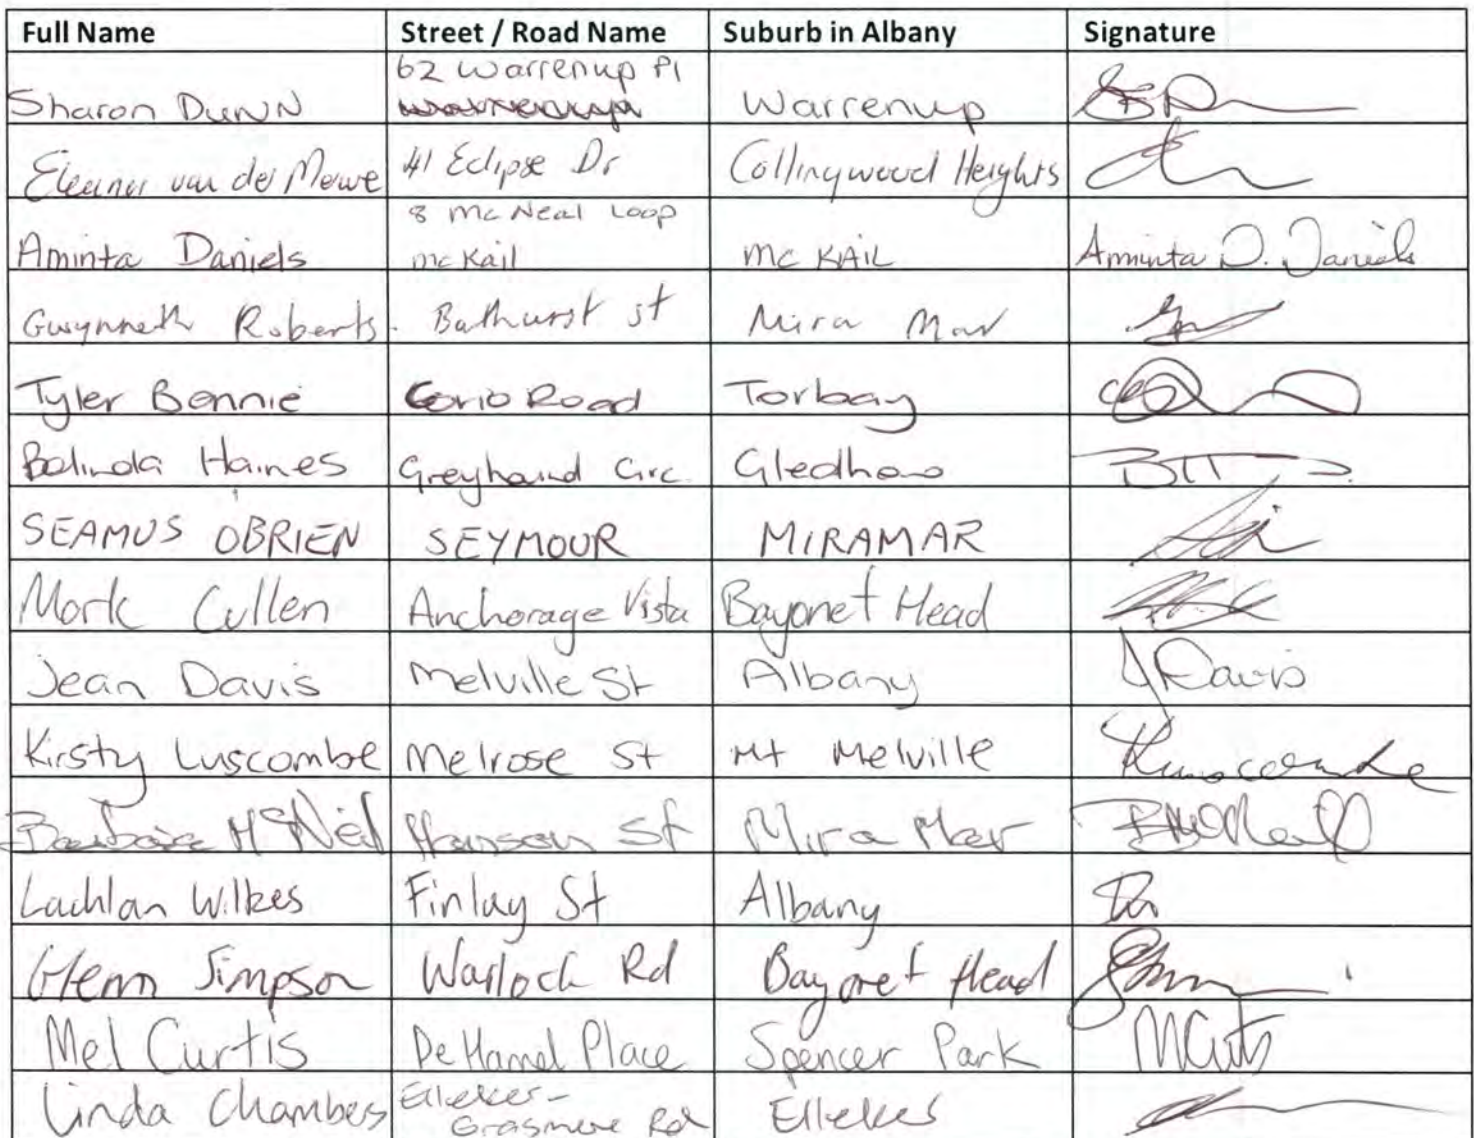 Full Name Street / Road Name Suburb in Albany Signature
62 Warrenup Pl
Sharon Dunn Warrenup
Eleanor van der Merwe 41 Eclipse Dr Collingwood Heights
8 McNeal Loop
Aminta Daniels McKail MC KAIL Aminta D. Daniels
Gwynneth Roberts. Bathurst St Mira Mar
Tyler Bennie Road Torbay
Belinda Haines Greyhound Circ. Gledhow
SEAMUS OBRIEN SEYMOUR MIRAMAR
Mark Cullen Anchorage Vista Bayonet Head
Jean Davis Melville St Albany J Davis
Kirsty Luscombe Melrose St Mt Melville
Barbara McNeil Hanson St Mira Mar
Lachlan Wilkes Finlay St Albany
Glenn Simpson Warlock Rd Bayonet Head
Mel Curtis De Hamel Place Spencer Park
Linda Chambers Elleker-
Grasmere Rd Elleker